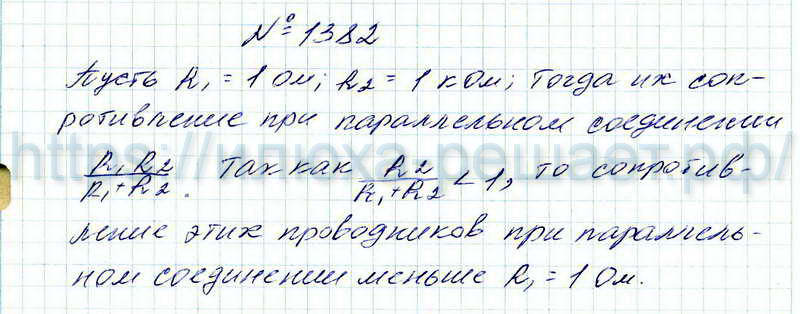 № 1382
Пусть R₁ = 1 ом; R₂ = 1 кОм; Тогда их соп-
ротивление при параллельном соединении
R₁R₂/R₁+R₂. Так как R₂/R₁+R₂ < 1, то сопротив-
ление этих проводников при параллель-
ном соединении меньше R₁ = 1 Ом.
https://илюха-решает.рф/